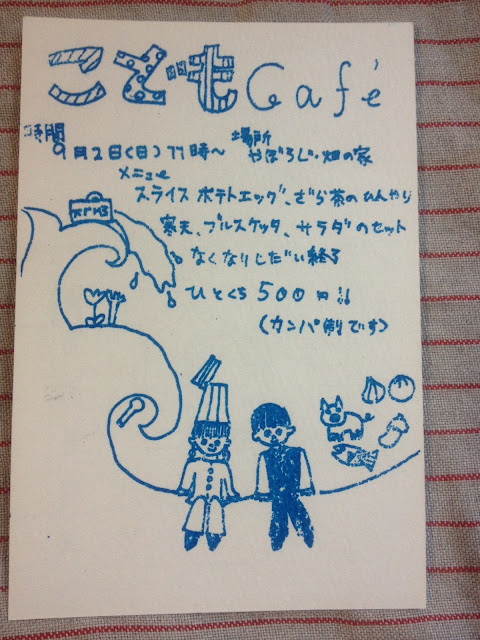 こどもCafé
時間 9月2日(日)11時〜 場所 やぼろじ・畑の家
メニュー
スライスポテトエッグ、ざら茶のひんやり
寒天、ブルスケッタ、サラダのセット
なくなりしだい終了
ひとくち500円!!
(カンパ制です)